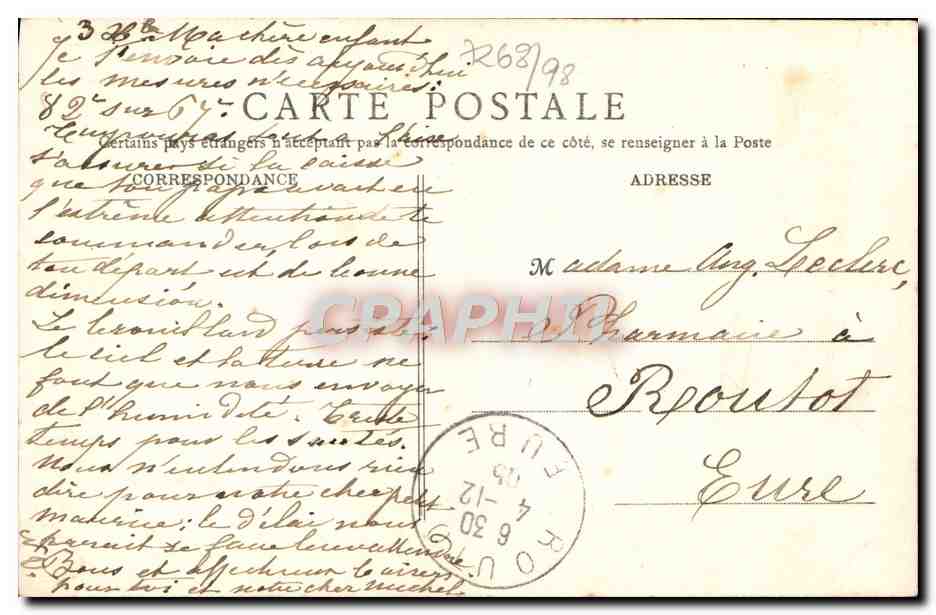 3 Xbre Ma chère enfant
je t'envoie dès aujourd'hui
les mesures nécessaires:
82c sur 67c
7268/98
CARTE POSTALE
tout à l'aise
Certains pays étrangers n'acceptent pas la correspondance de ce côté, se renseigner à la Poste
t'assurer si la caisse
CORRESPONDANCE
ADRESSE
que ton papa avait eu
l'extrême attention de te
commander, lors de
ton départ est de bonne
dimension.
Madame Aug. Leclerc,
Le brouillard persiste;
CPARHI
Pharmacie à
le ciel et la terre ne
font que nous envoyer
Routot
de l'humidité. Triste
temps pour les santés.
Eure
Nous n'entendons rien
dire pour notre cher petit
Maurice; le délai nous
paraît se faire bien attendre.
Bons et affectueux baisers
pour toi et notre cher Michel
ROU EURE
6 30
4 -12
05